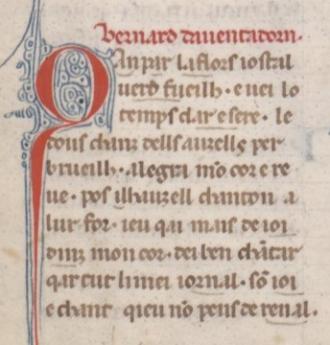 bernard dauentadorn.
Qan par la flors iostal
uerd fueilh. e uei lo
temps clar e sere. le
dous chanz dells auzells per
brueilh. Alegra mo cor e re
ue. pos illi auzell chanton a
lur for. ieu qai mais de ioi
dinz mon cor. dei ben chātar
qar tut li miei iornal. sō ioi
e chant qieu nō pens de ren al.